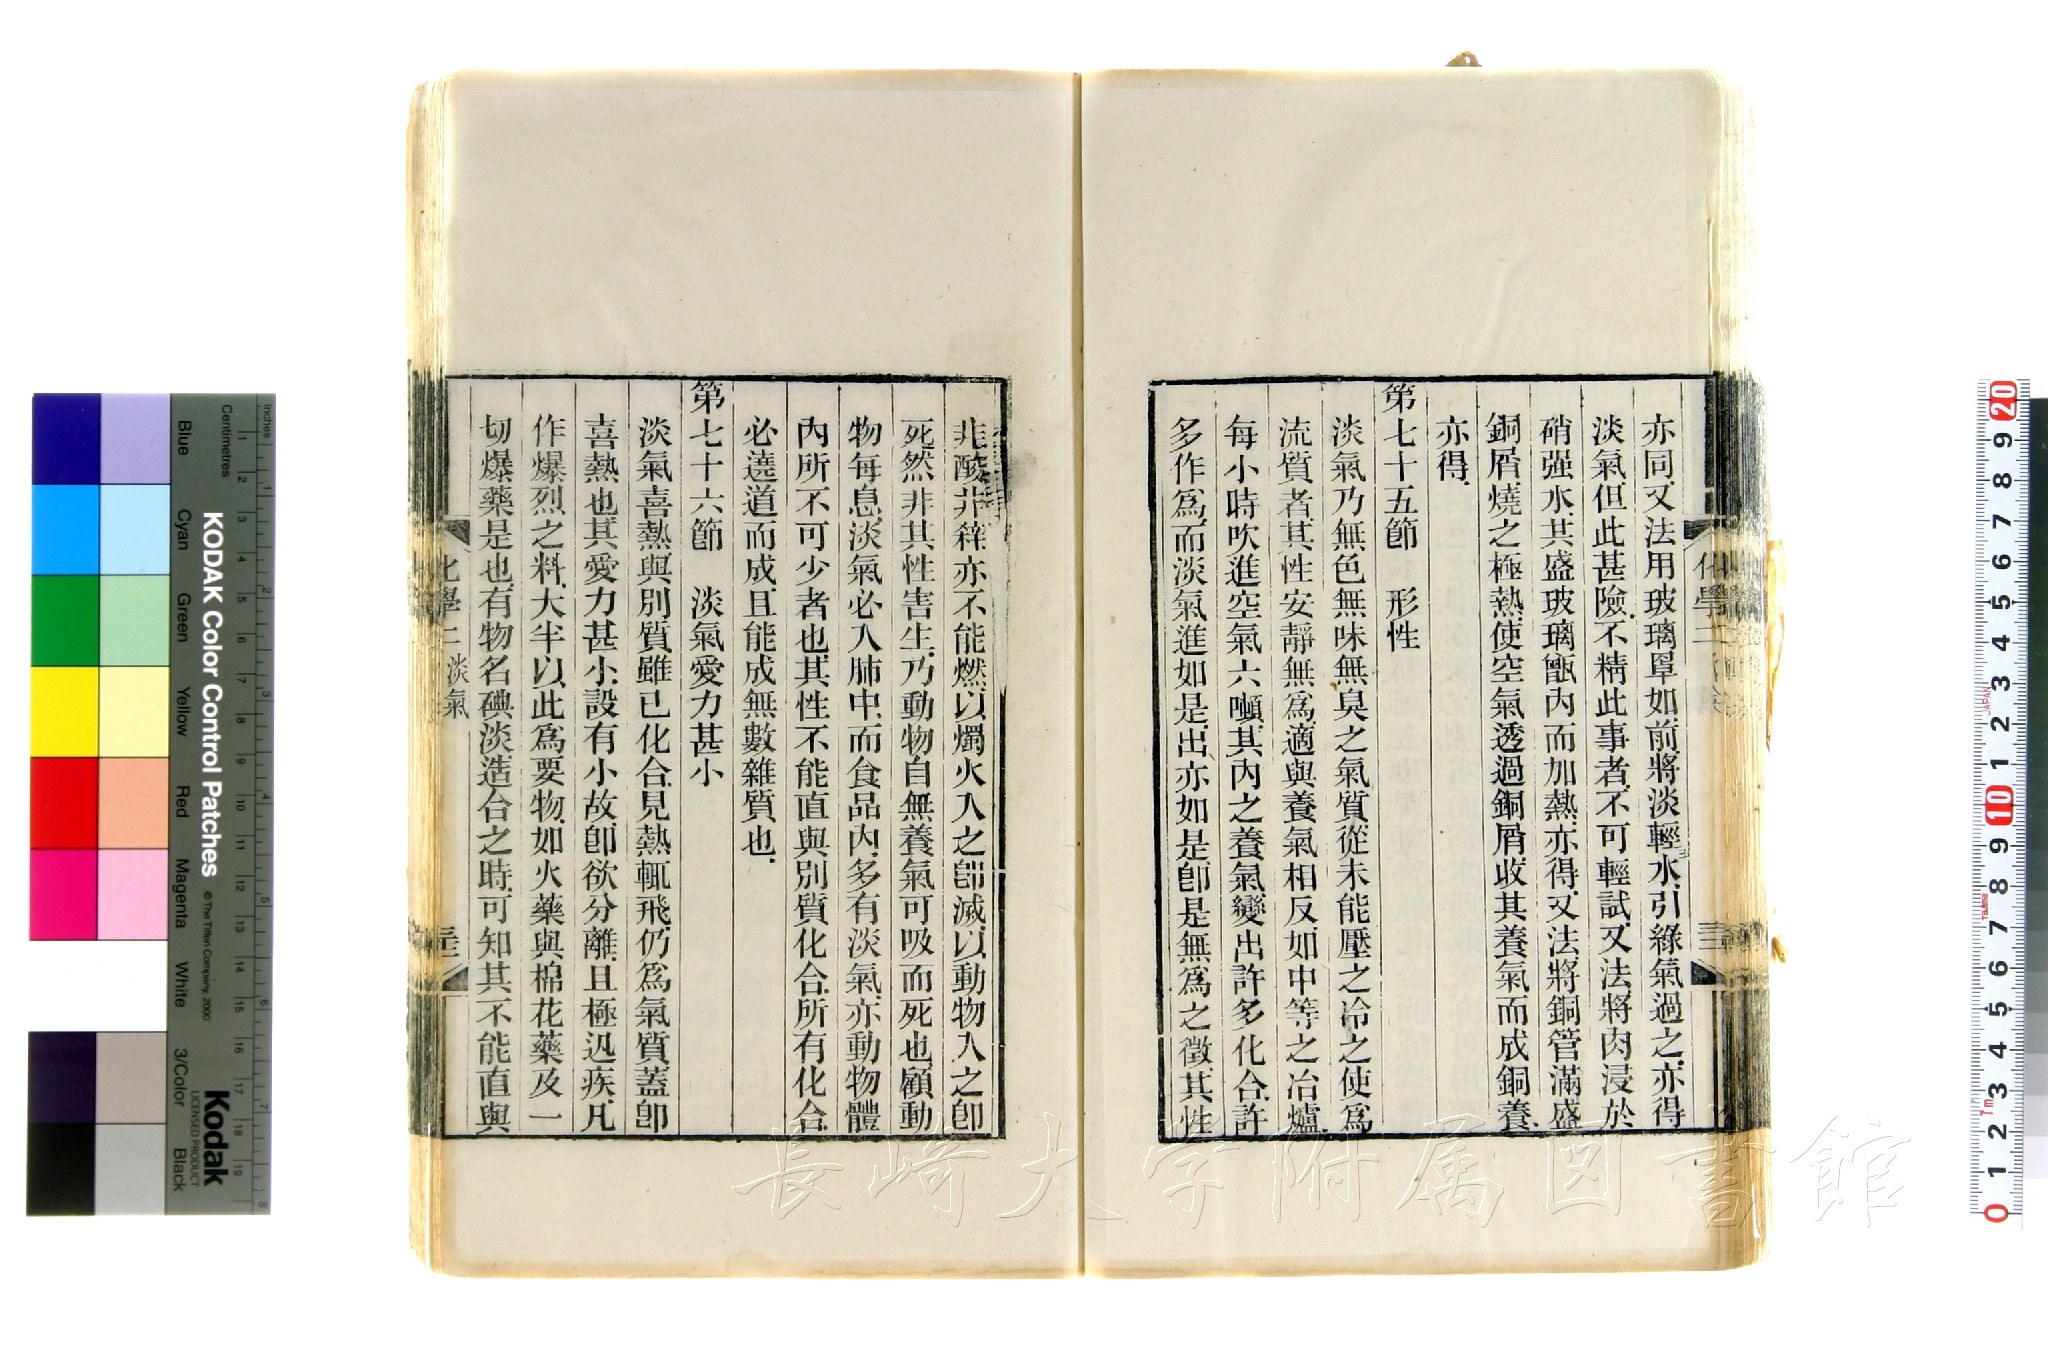 亦同.又法用玻璃罩如前.將淡輕三水.引綠氣過之.亦得
淡氣.但此甚險.不精此事者.不可輕試.又法將肉浸於
硝强水.共盛玻璃甑內而加熱.亦得.又法.將銅管滿盛
銅屑.燒之極熱.使空氣透過銅屑.收其養氣而成銅養.
亦得.
第七十五節　形性
淡氣乃無色無味無臭之氣質.從未能壓之冷之使爲
流質者.其性安靜無爲.適與養氣相反.如中等之冶爐.
每小時吹進空氣六噸.其內之養氣.變出許多化合.許
多作爲.而淡氣進如是.出亦如是.卽是無爲之徵.其性
非酸非𨐌.亦不能燃.以燭火入之卽滅.以動物入之卽
死.然非其性害生.乃動物自無養氣可吸而死也.顧動
物每息.淡氣必入肺中.而食品內.多有淡氣.亦動物體
內所不可少者也.其性不能直與別質化合.所有化合.
必遶道而成.且能成無數雜質也.
第七十六節　淡氣愛力甚小
淡氣喜熱.與別質雖已化合.見熱輒飛.仍爲氣質.蓋卽
喜熱也.其愛力甚小.設有小故.卽欲分離.且極迅疾.凡
作爆烈之料.大半以此爲要物.如火藥與棉花藥及一
切爆藥是也.有物名碘淡.造合之時.可知其不能直與
化學二　淡氣
KODAK Color Control Patches
© The Tiffen Company, 2000
Kodak
LICENSED PRODUCT
Inches
Centimetres
Blue
Cyan
Green
Yellow
Red
Magenta
White
3/Color
Black
長崎大学附属図書館